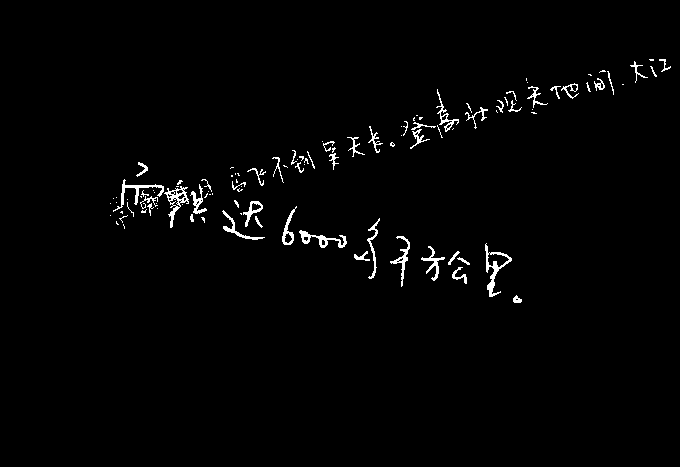 鸟飞不到吴天长。登高壮观天地间.大江
达6000多平方公里。